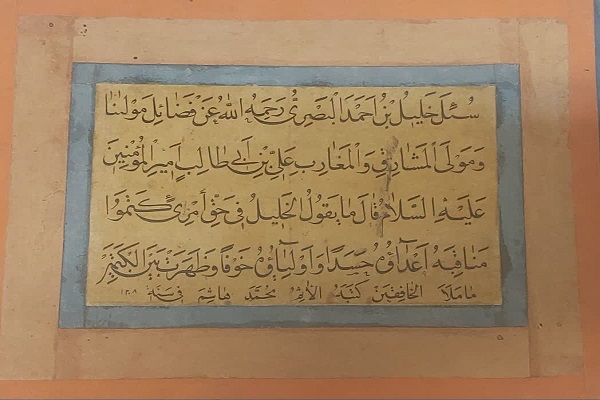 سُئِلَ خَلِيلُ بْنُ اَحْمَدَ الْبَصَرِيُّ رَحِمَهُ اللّٰهُ عَنْ فَضَائِلِ مَوْلٰنَا
وَمَوْلَى الْمَشَارِقِ وَالْمَغَارِبِ عَلِيِّ بْنِ اَبِي طَالِبٍ اَمِيرِ الْمُؤْمِنِينَ
عَلَيْهِ السَّلَامُ قَالَ مَا يَقُولُ الْخَلِيلُ فِي حَقِّ اَمْرِئٍ كَتَمُوا
مَنَاقِبَهُ اَعْدَاؤُهُ حَسَدًا وَاَوْلِيَاؤُهُ خَوْفًا وَظَهَرَتْ بَيْنَ الْكَتْمَيْنِ
مَا مَلَاَ الْخَافِقَيْنِ كَتَبَهُ الْاَثِمُ مُحَمَّد هَاشِم فِي سَنَة ١٢٠٨